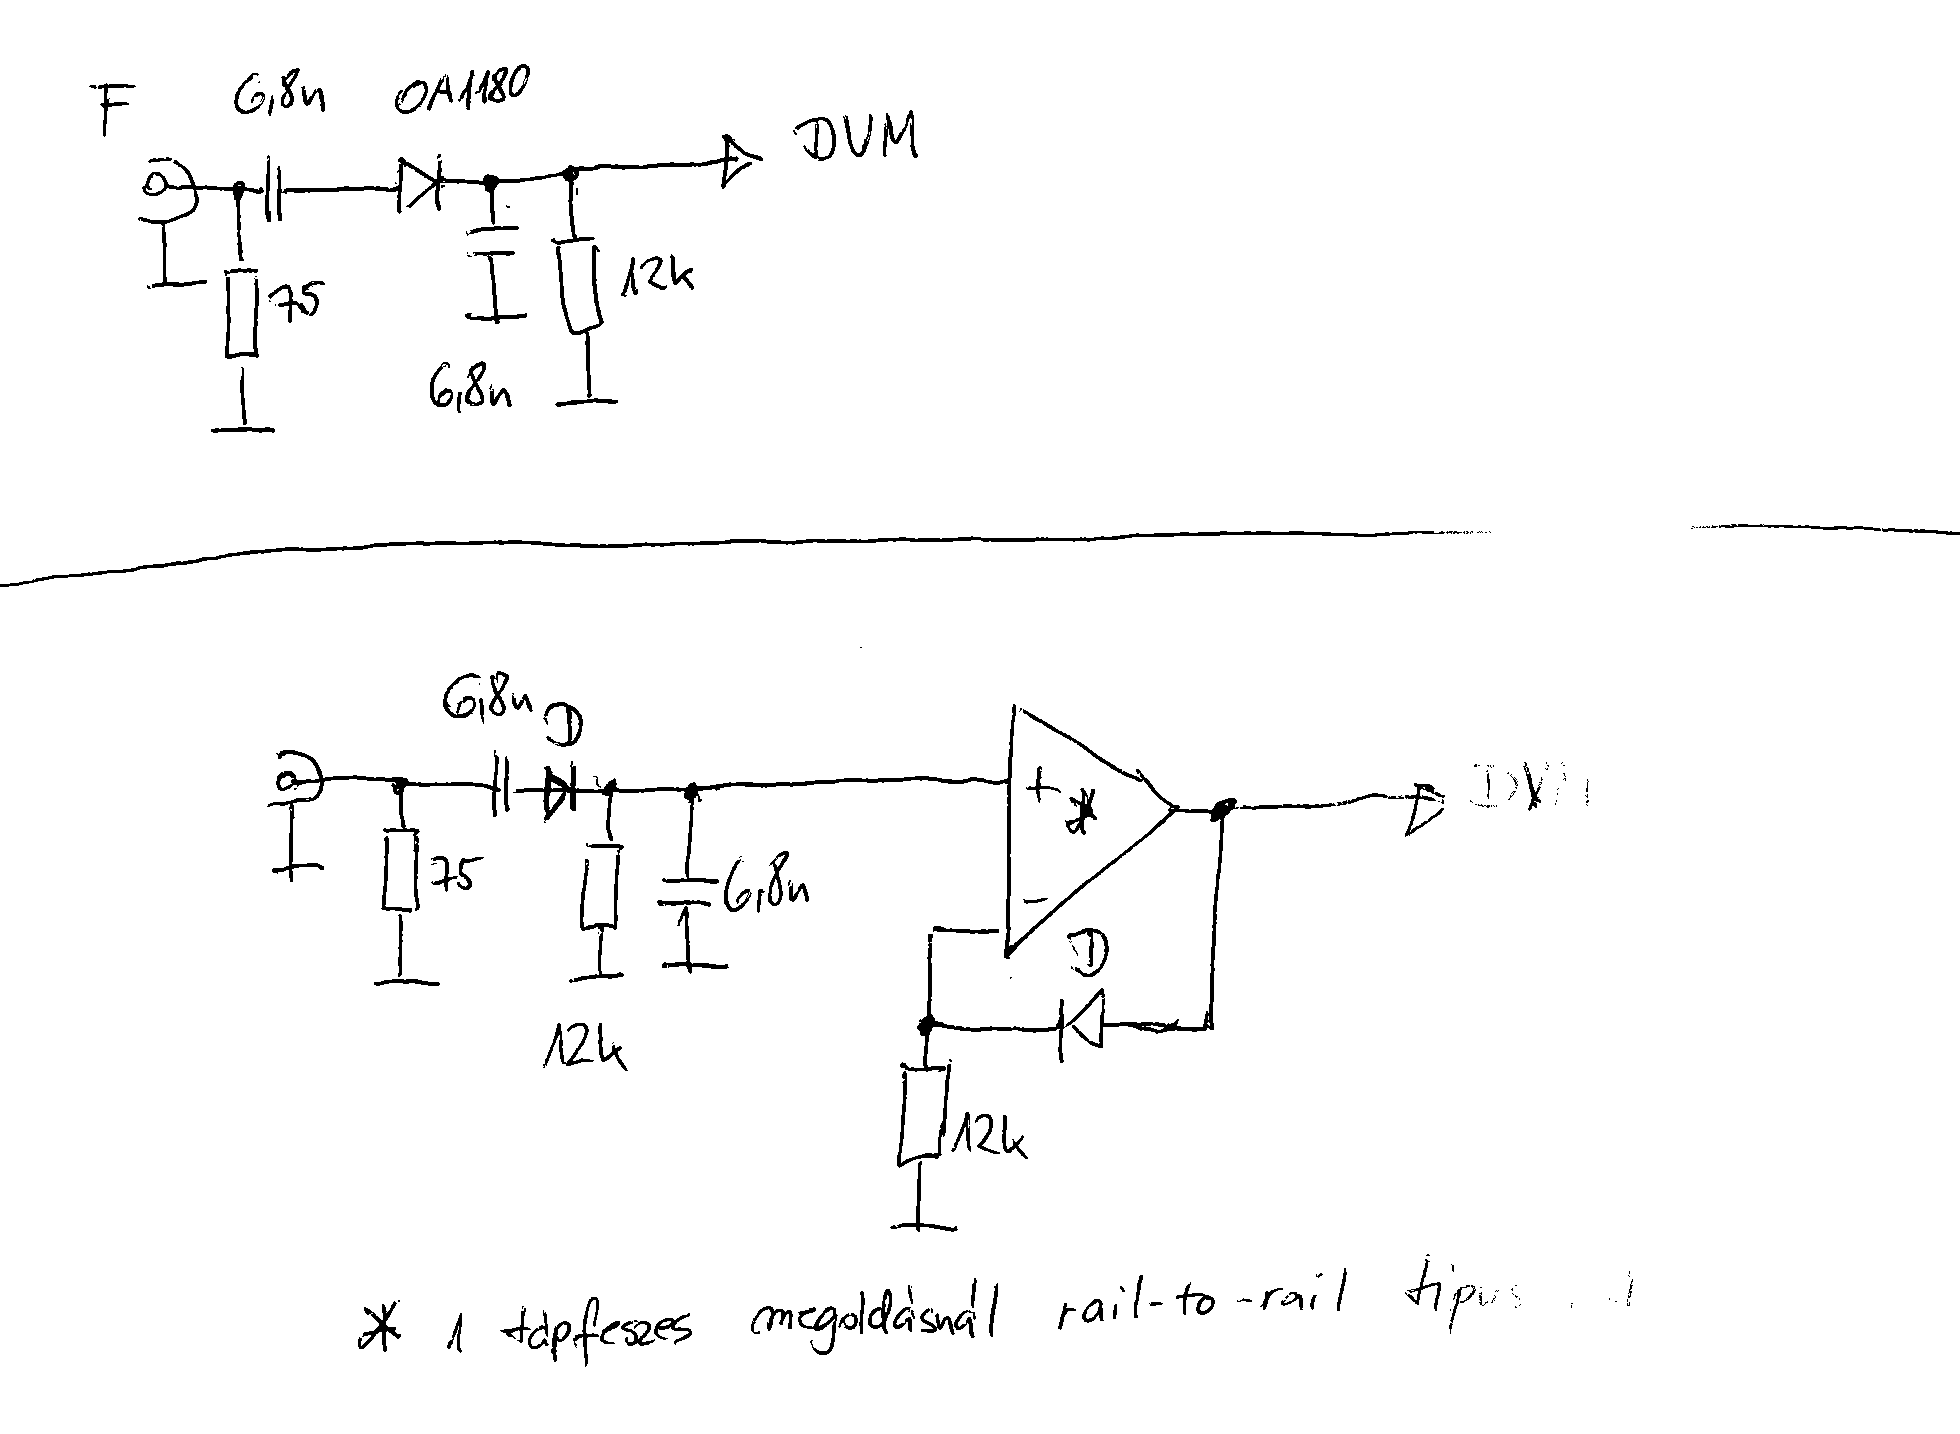 F 6,8n OA1180 DVM
75
12k
6,8n
6,8n D
+ *
75
6,8n
-
D
12k
12k
* 1 tápfeszes megoldásnál rail-to-rail